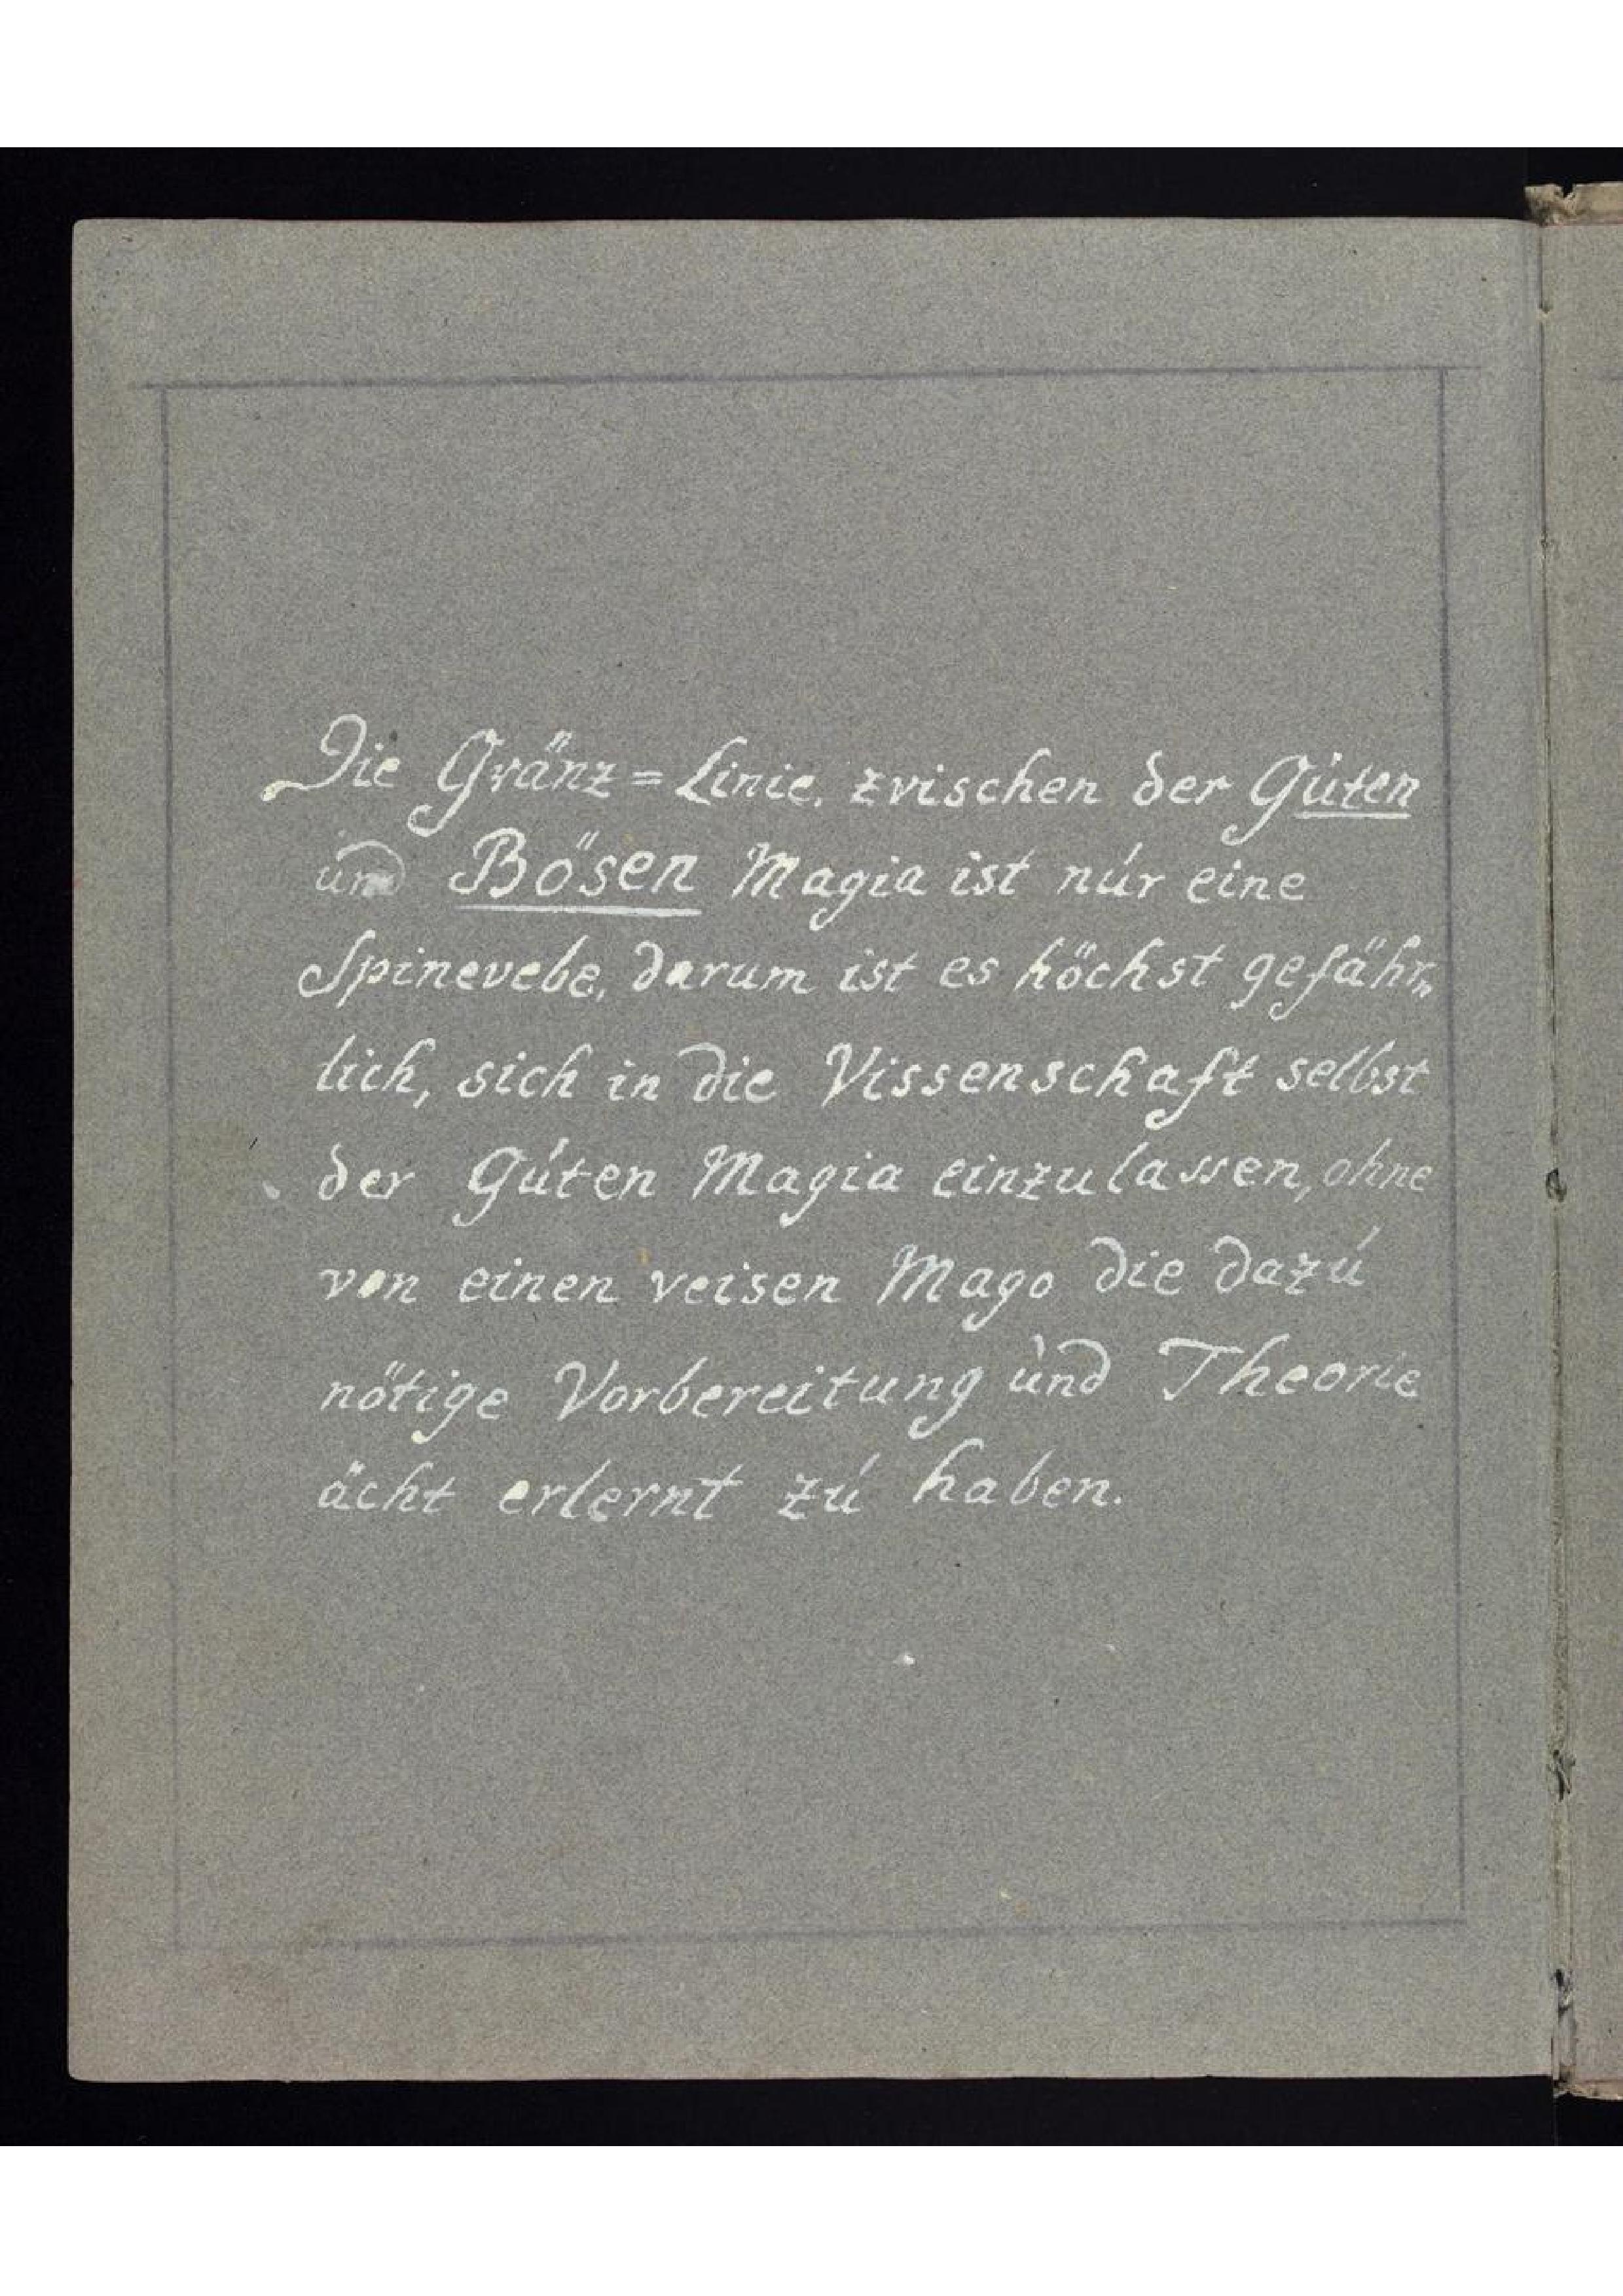 Die Gränz=Linie. zvischen der Gúten
únd Bösen Magia ist núr eine
Spinevebe, darum ist es höchst gefähr„
lich, sich in die Vissenschaft selbst
der Gúten Magia einzulassen, ohne
von einen veisen Mago die dazú
nötige Vorbereitung únd Theorie
ächt erlernt zú haben.